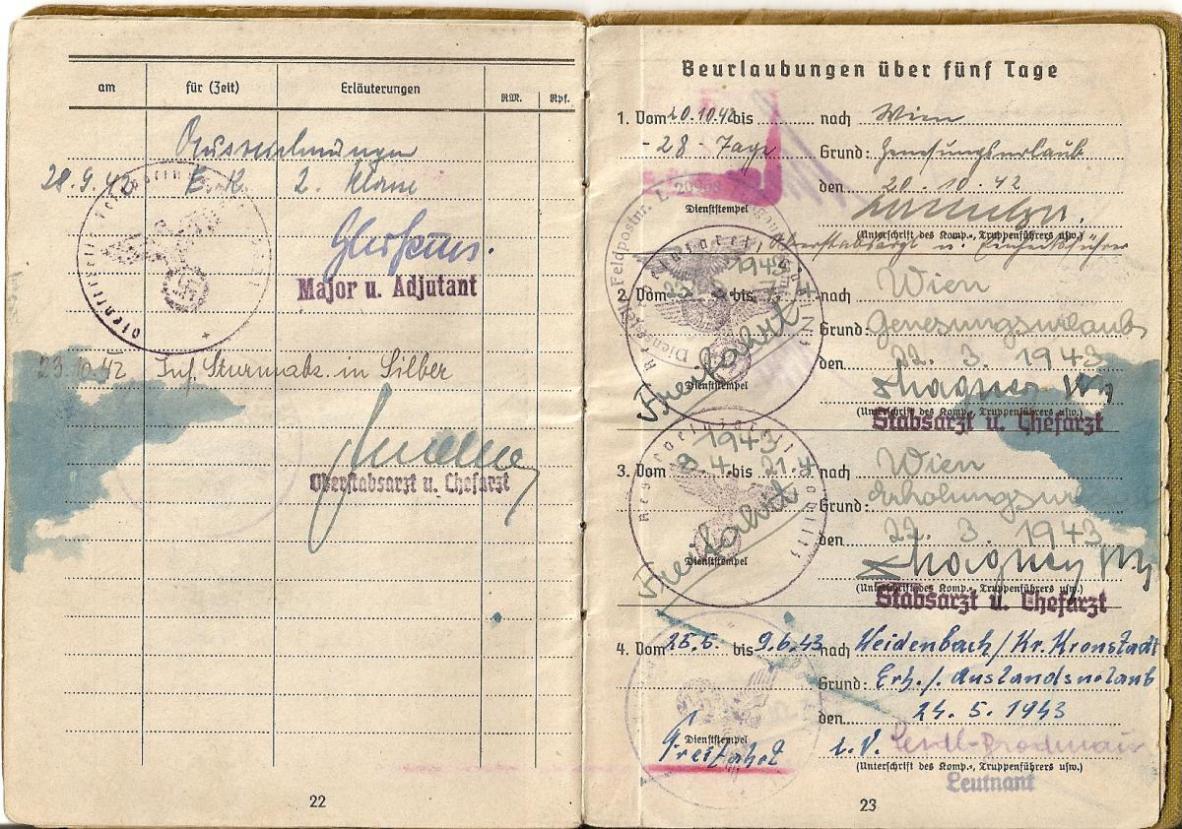 am für (Zeit) Erläuterungen RM. Rpf.
Auszeichnungen
28.9.42 E.K. 2. Klasse
Major u. Adjutant
23.10.42 Inf. Sturmabz. in Silber
Oberstabsarzt u. Chefarzt
22
Beurlaubungen über fünf Tage
1. Vom 20.10.42 bis nach Wien
- 28 - Tage Grund: Genesungsurlaub
den 20.10.42
Dienststempel
(Unterschrift des Komp.-, Truppenführers usw.)
Oberstabsarzt u. Einheitsführer
1943
2. Vom bis nach Wien
Grund: Genesungsurlaub
Freifahrt
den 22. 3. 1943
Dienststempel
(Unterschrift des Komp.-, Truppenführers usw.)
Stabsarzt u. Chefarzt
1943
3. Vom 8.4. bis 21.4 nach Wien
Grund: Erholungsur
Freifahrt
den 22. 3. 1943
Dienststempel
(Unterschrift des Komp.-, Truppenführers usw.)
Stabsarzt u. Chefarzt
4. Vom 25.5. bis 9.6.43 nach Weidenbach/Kr. Kronstadt
Grund: Erh./Auslandsurlaub
den 24.5.1943
Dienststempel
Freifahrt
i.V.
(Unterschrift des Komp.-, Truppenführers usw.)
Leutnant
23